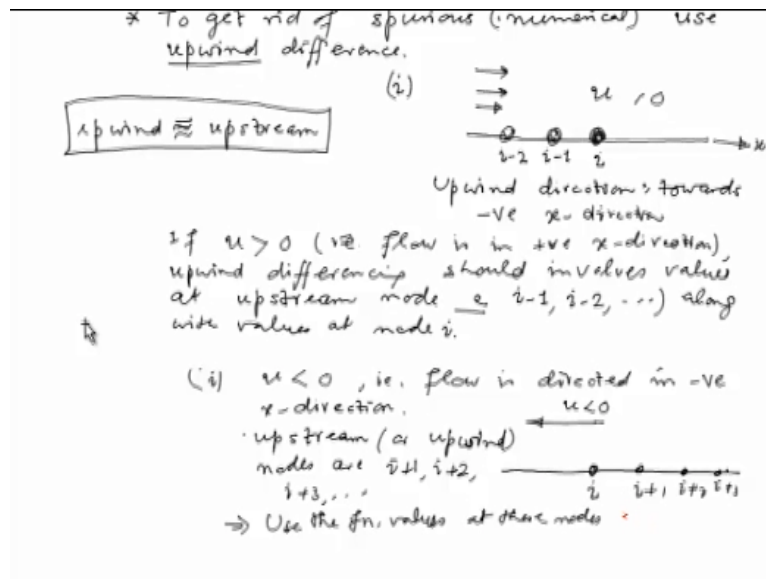 * To get rid of spurious (numerical) use
upwind difference.
(i)
u > 0
upwind ≈ upstream
i-2 i-1 i x
Upwind direction: towards
-ve x-direction
If u > 0 (ie. flow is in +ve x-direction),
upwind differencing should involves values
at upstream node i-1, i-2, ...) along
wide values at node i.
(i) u < 0, ie. flow is directed in -ve
x-direction. u<0
upstream (or upwind)
nodes are i+1, i+2,
i+3, ... i i+1 i+2 i+3
⇒ Use the fn. values at these nodes